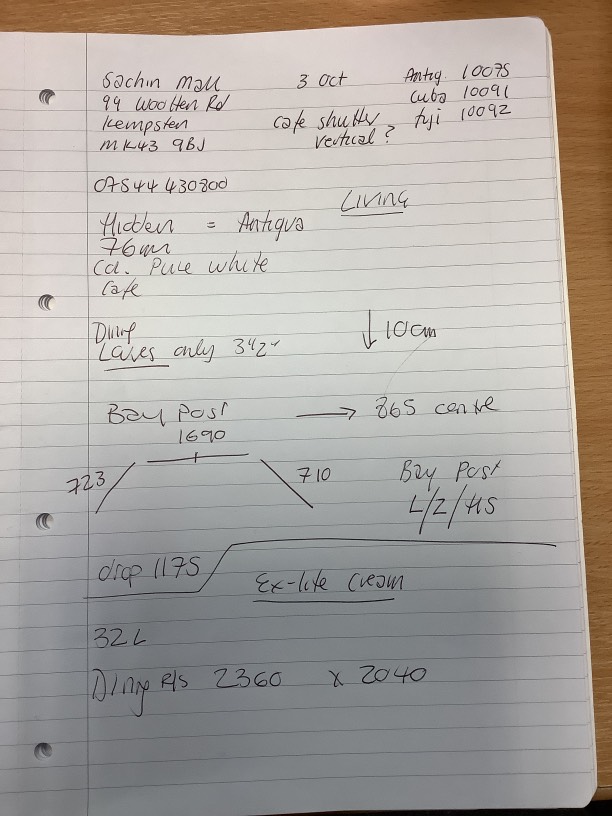 Sachin Mall
99 Wootten Rd
Kempsten
MK43 9BJ
3 Oct
cafe shutter
vertical?
Antig 10075
Cuba 10091
fiji 10092
07544 430800
Living
Hidden = Antigua
76mm
Col. Pure white
Cafe
Dining
Laves only 3'2"
↓ 10cm
Bay Post → 865 centre
1690
723
710
Bay Post
L/Z/45
drop 1175
Ex-lite Cream
32L
Dining R/S 2360 x 2040